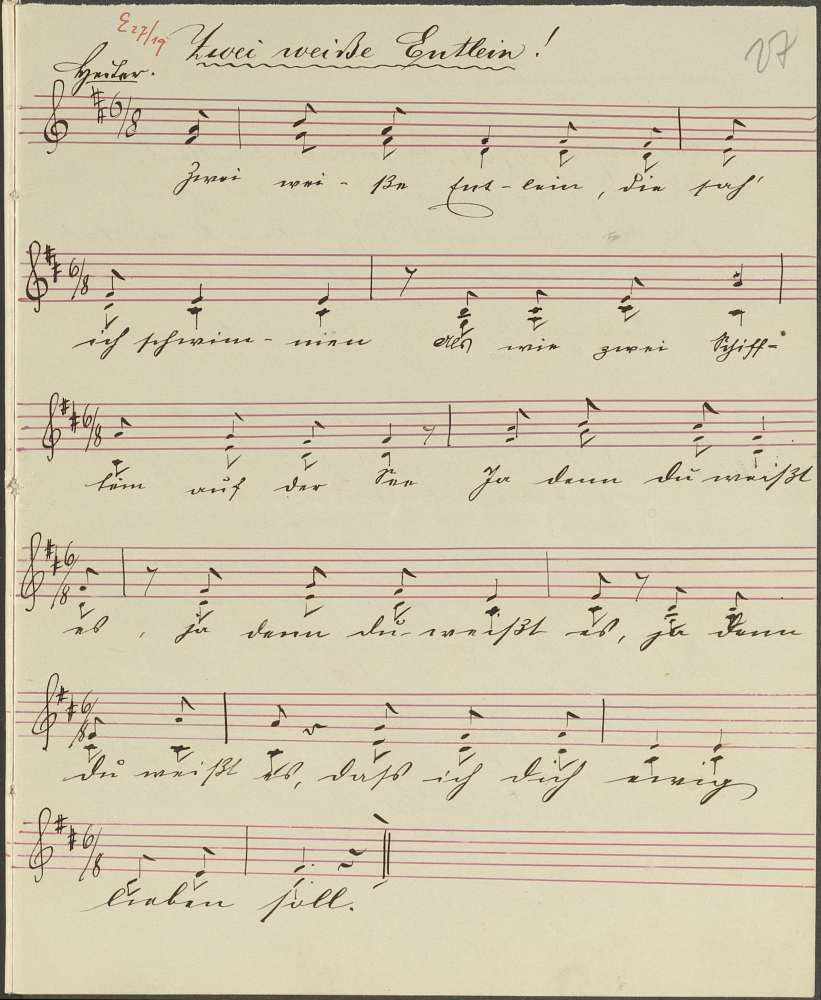 E 27/19
Zwei weiße Entlein!
27
Heiter.
6/8
Zwei wei - ße Ent - lein, die sah'
6/8
ich schwim - men Als wie zwei Schiff-
6/8
lein auf der See Ja denn du weißt
6/8
es, ja denn du weißt es, ja denn
6/8
du weißt es, dass ich dich ewig
6/8
lieben soll.